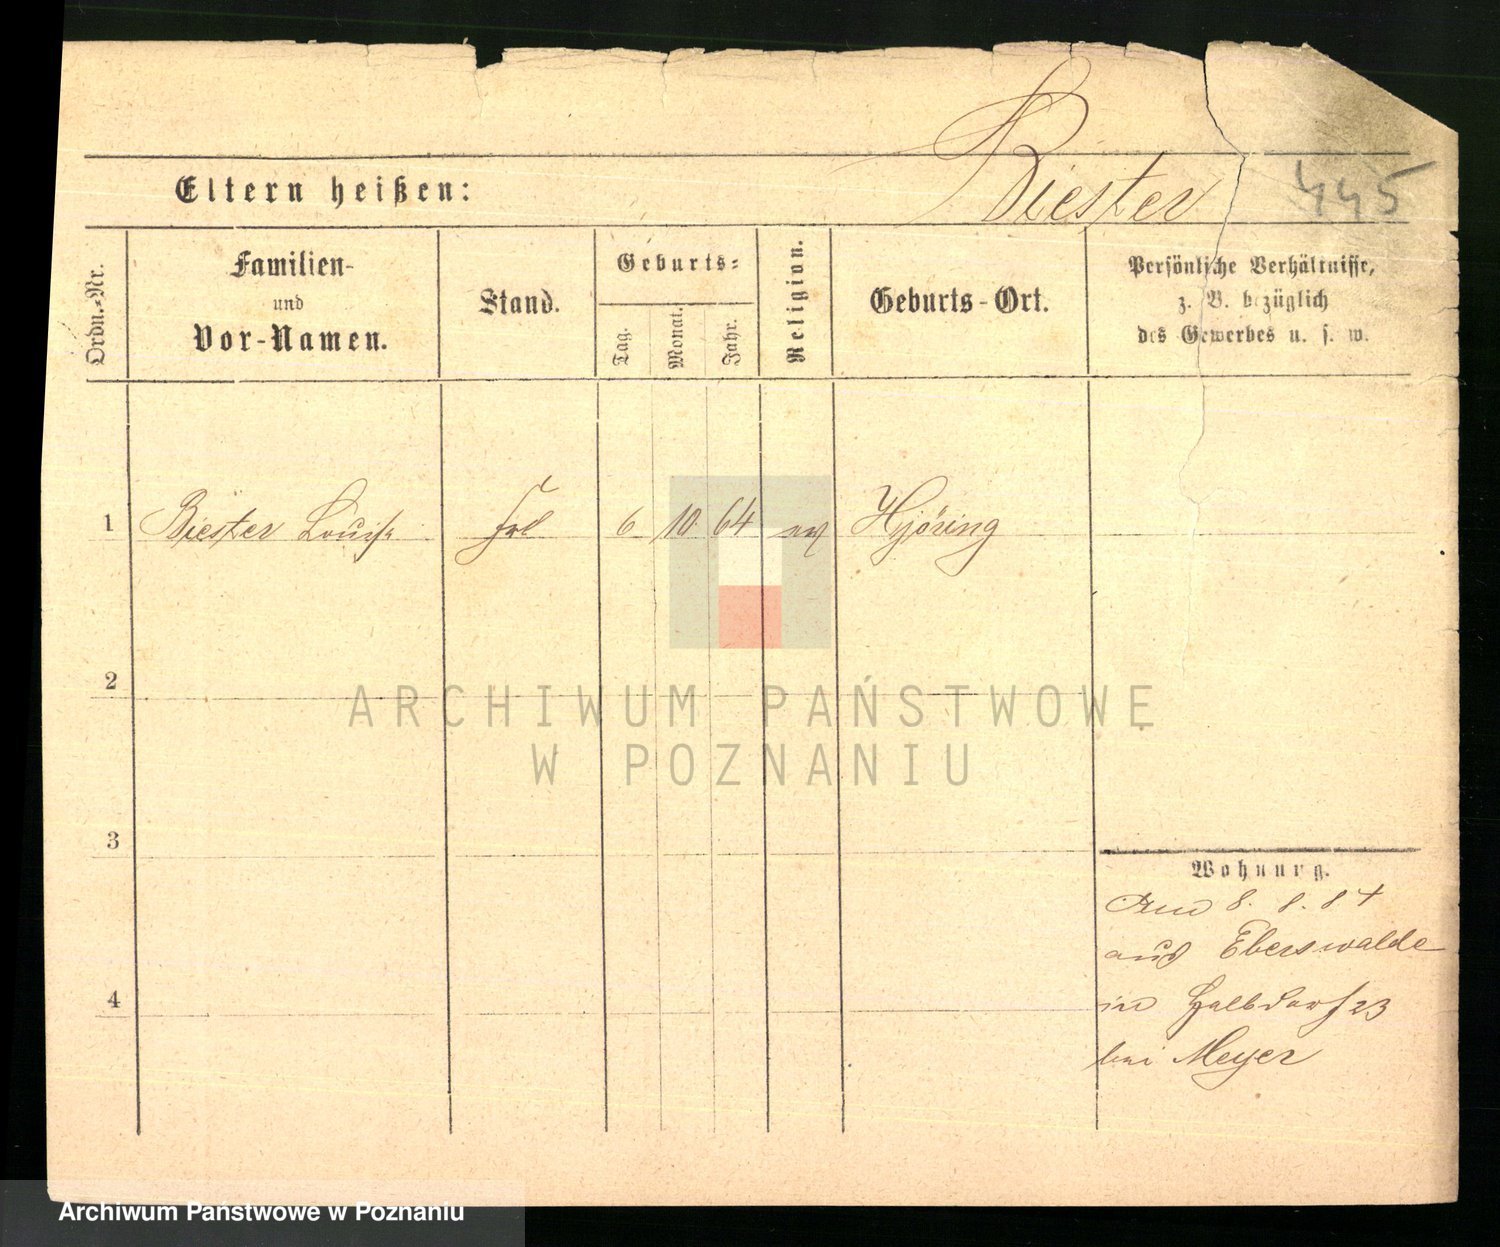 Biester
445
Eltern heißen:
Ordn.-Nr.
Familien-
und
Vor-Namen.
Stand.
Geburts-
Tag.
Monat.
Jahr.
Religion.
Geburts-Ort.
Persönliche Verhältnisse,
z. B. bezüglich
des Gewerbes u. s. w.
1 Biester Louise Frl 6 10. 64 ev Hjöring
2
3
4
Wohnung.
8. 8. 84
aus Eberswalde
in Halbdorf 23
bei Meyer
ARCHIWUM PAŃSTWOWE
W POZNANIU
Archiwum Państwowe w Poznaniu